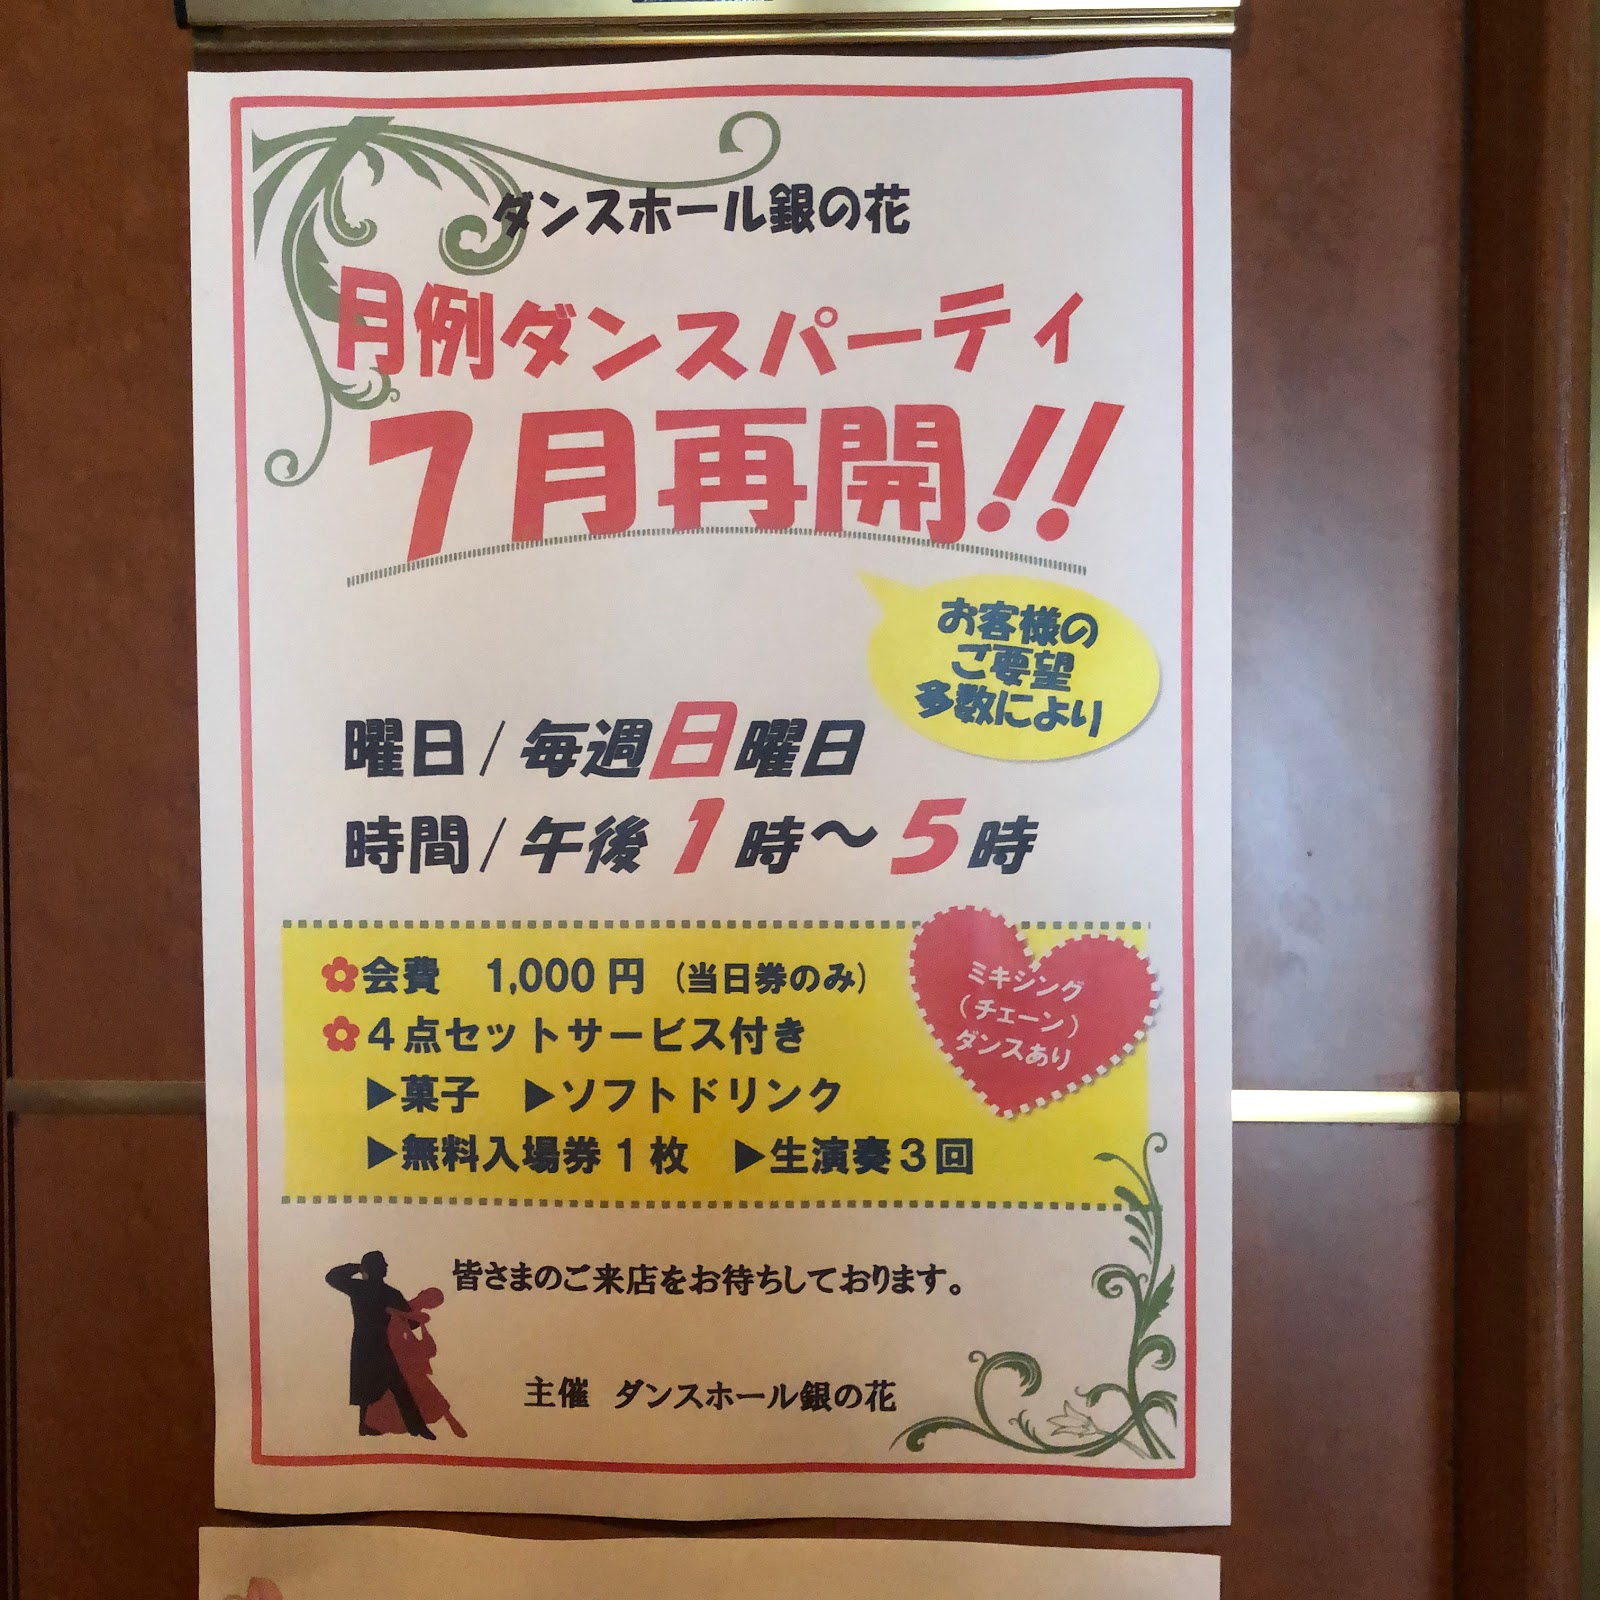 ダンスホール銀の花
月例ダンスパーティ
7月再開!!
お客様の
ご要望
多数により
曜日/毎週日曜日
時間/午後1時～5時
会費 1,000円 (当日券のみ)
4点セットサービス付き
▶菓子 ▶ソフトドリンク
▶無料入場券1枚 ▶生演奏3回
ミキシング
(チェーン)
ダンスあり
皆さまのご来店をお待ちしております。
主催 ダンスホール銀の花